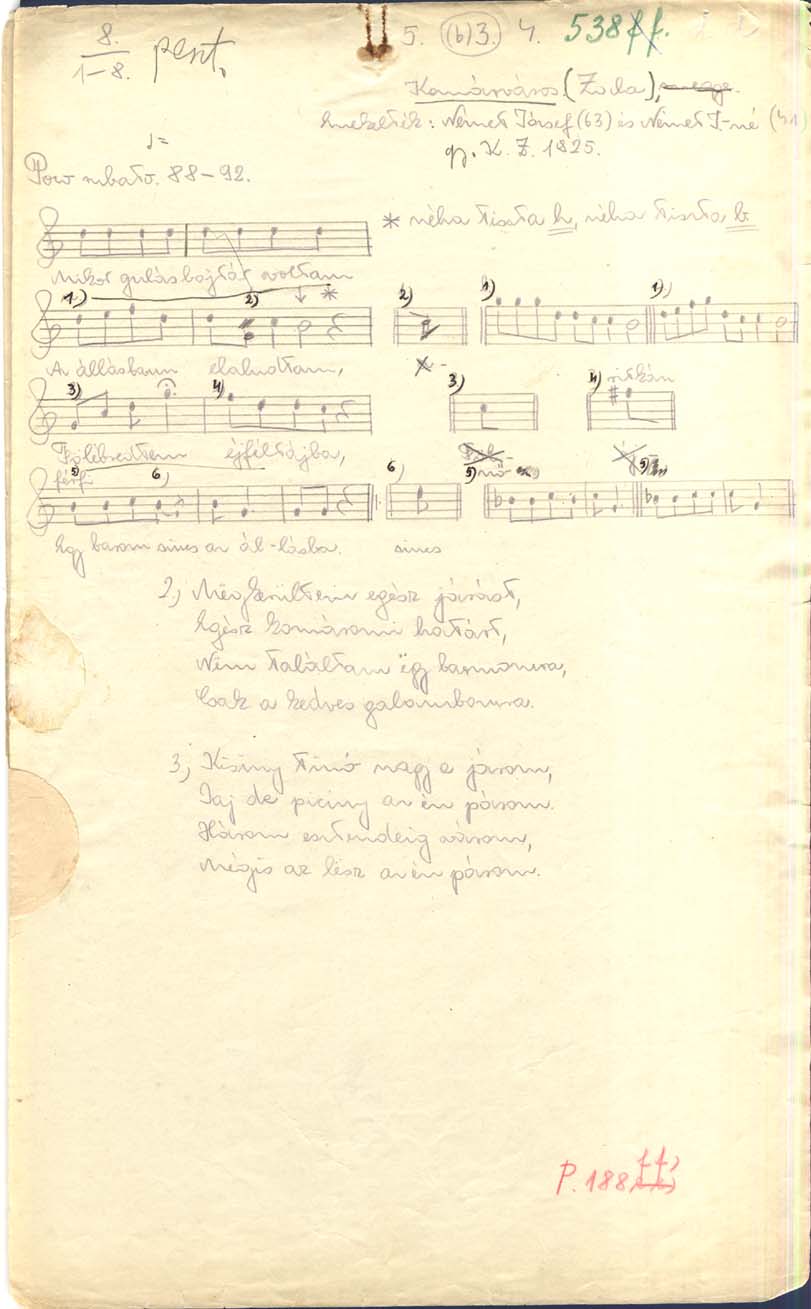 8.
1–8. pent.
5. (b)3. 4. 538ff.
Komárváros (Zala),
énekelték: Német József (63) és Német J-né
gy. K. Z. 1925.
♩=
Poco rubato. 88–92.
* néha tiszta h, néha tiszta b
Mikor gulásbojtár voltam
1.) 2) ↓ * 2) 1) 1)
Az állásbann elaludtam,
3) 4) 3) 4) ritkán
Fölébredtem éjféltájba,
férfi 5) 6) 6) nő 5) 5)
Egy barom sincs az ál-lásba. sincs
2.) Mëgkerültem egész járást,
Egész komáromi határt,
Nëm találtam ëgy barmomra,
Csak a kedves galambomra.
3.) Kisiny tinó nagy a járom,
Jaj de piciny az én párom.
Három esztendeig várom,
Mégis az lësz az én párom.
P. 188